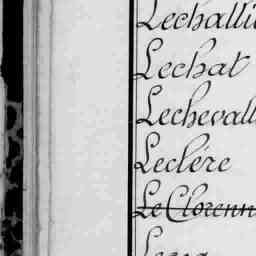 Lechalli
Lechat
Lechevall
Leclère
Le Clorenn